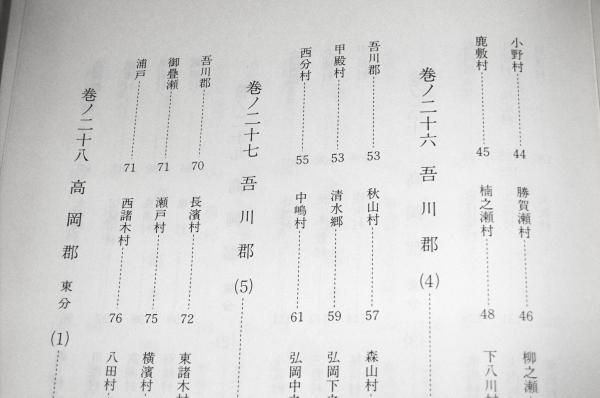 小野村 44 勝賀瀬村 46 柳之瀬
鹿敷村 45 楠之瀬村 48 下八川村
巻ノ二十六 吾川郡 (4)
吾川郡 53 秋山村 57 森山村
甲殿村 53 清水郷 59 弘岡下
西分村 55 中嶋村 61 弘岡中
巻ノ二十七 吾川郡 (5)
吾川郡 70 長濱村 72 東諸木村
御畳瀬 71 瀬戸村 75 横濱村
浦戸 71 西諸木村 76 八田村
巻ノ二十八 高岡郡 東分 (1)